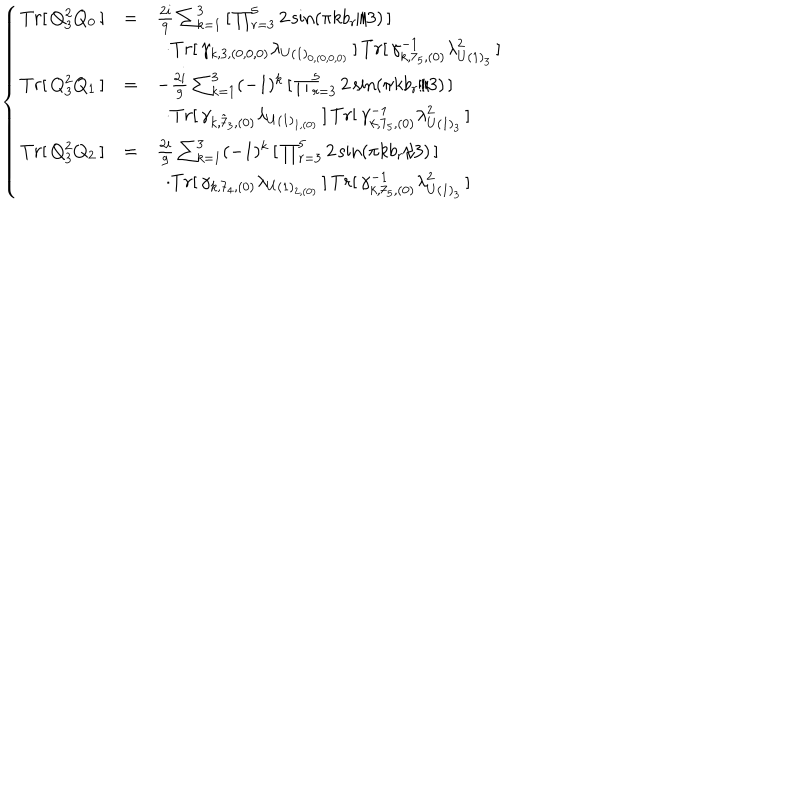 Tr[ Q_3^2 Q_0 ] = \frac{2i}{9} \sum_{k=1}^{3} [ \prod_{r=3}^{5} 2 sin(πkb_r/3) ]
·Tr[ γ_{k,3,(0,0,0)} λ_{U(1)_{0,(0,0,0)}} ] Tr[ γ_{k,7_5,(0)}^{-1} λ_{U(1)_3}^2 ]
Tr[ Q_3^2 Q_1 ] = -\frac{2i}{9} \sum_{k=1}^{3} (-1)^k [ \prod_{r=3}^{5} 2 sin(πkb_r/3) ]
·Tr[ γ_{k,\tilde{7}_3,(0)} λ_{U(1)_{1,(0)}} ] Tr[ γ_{k,7_5,(0)}^{-1} λ_{U(1)_3}^2 ]
Tr[ Q_3^2 Q_2 ] = \frac{2i}{9} \sum_{k=1}^{3} (-1)^k [ \prod_{r=3}^{5} 2 sin(πkb_r/3) ]
·Tr[ γ_{k,7_4,(0)} λ_{U(1)_{2,(0)}} ] Tr[ γ_{k,7_5,(0)}^{-1} λ_{U(1)_3}^2 ]